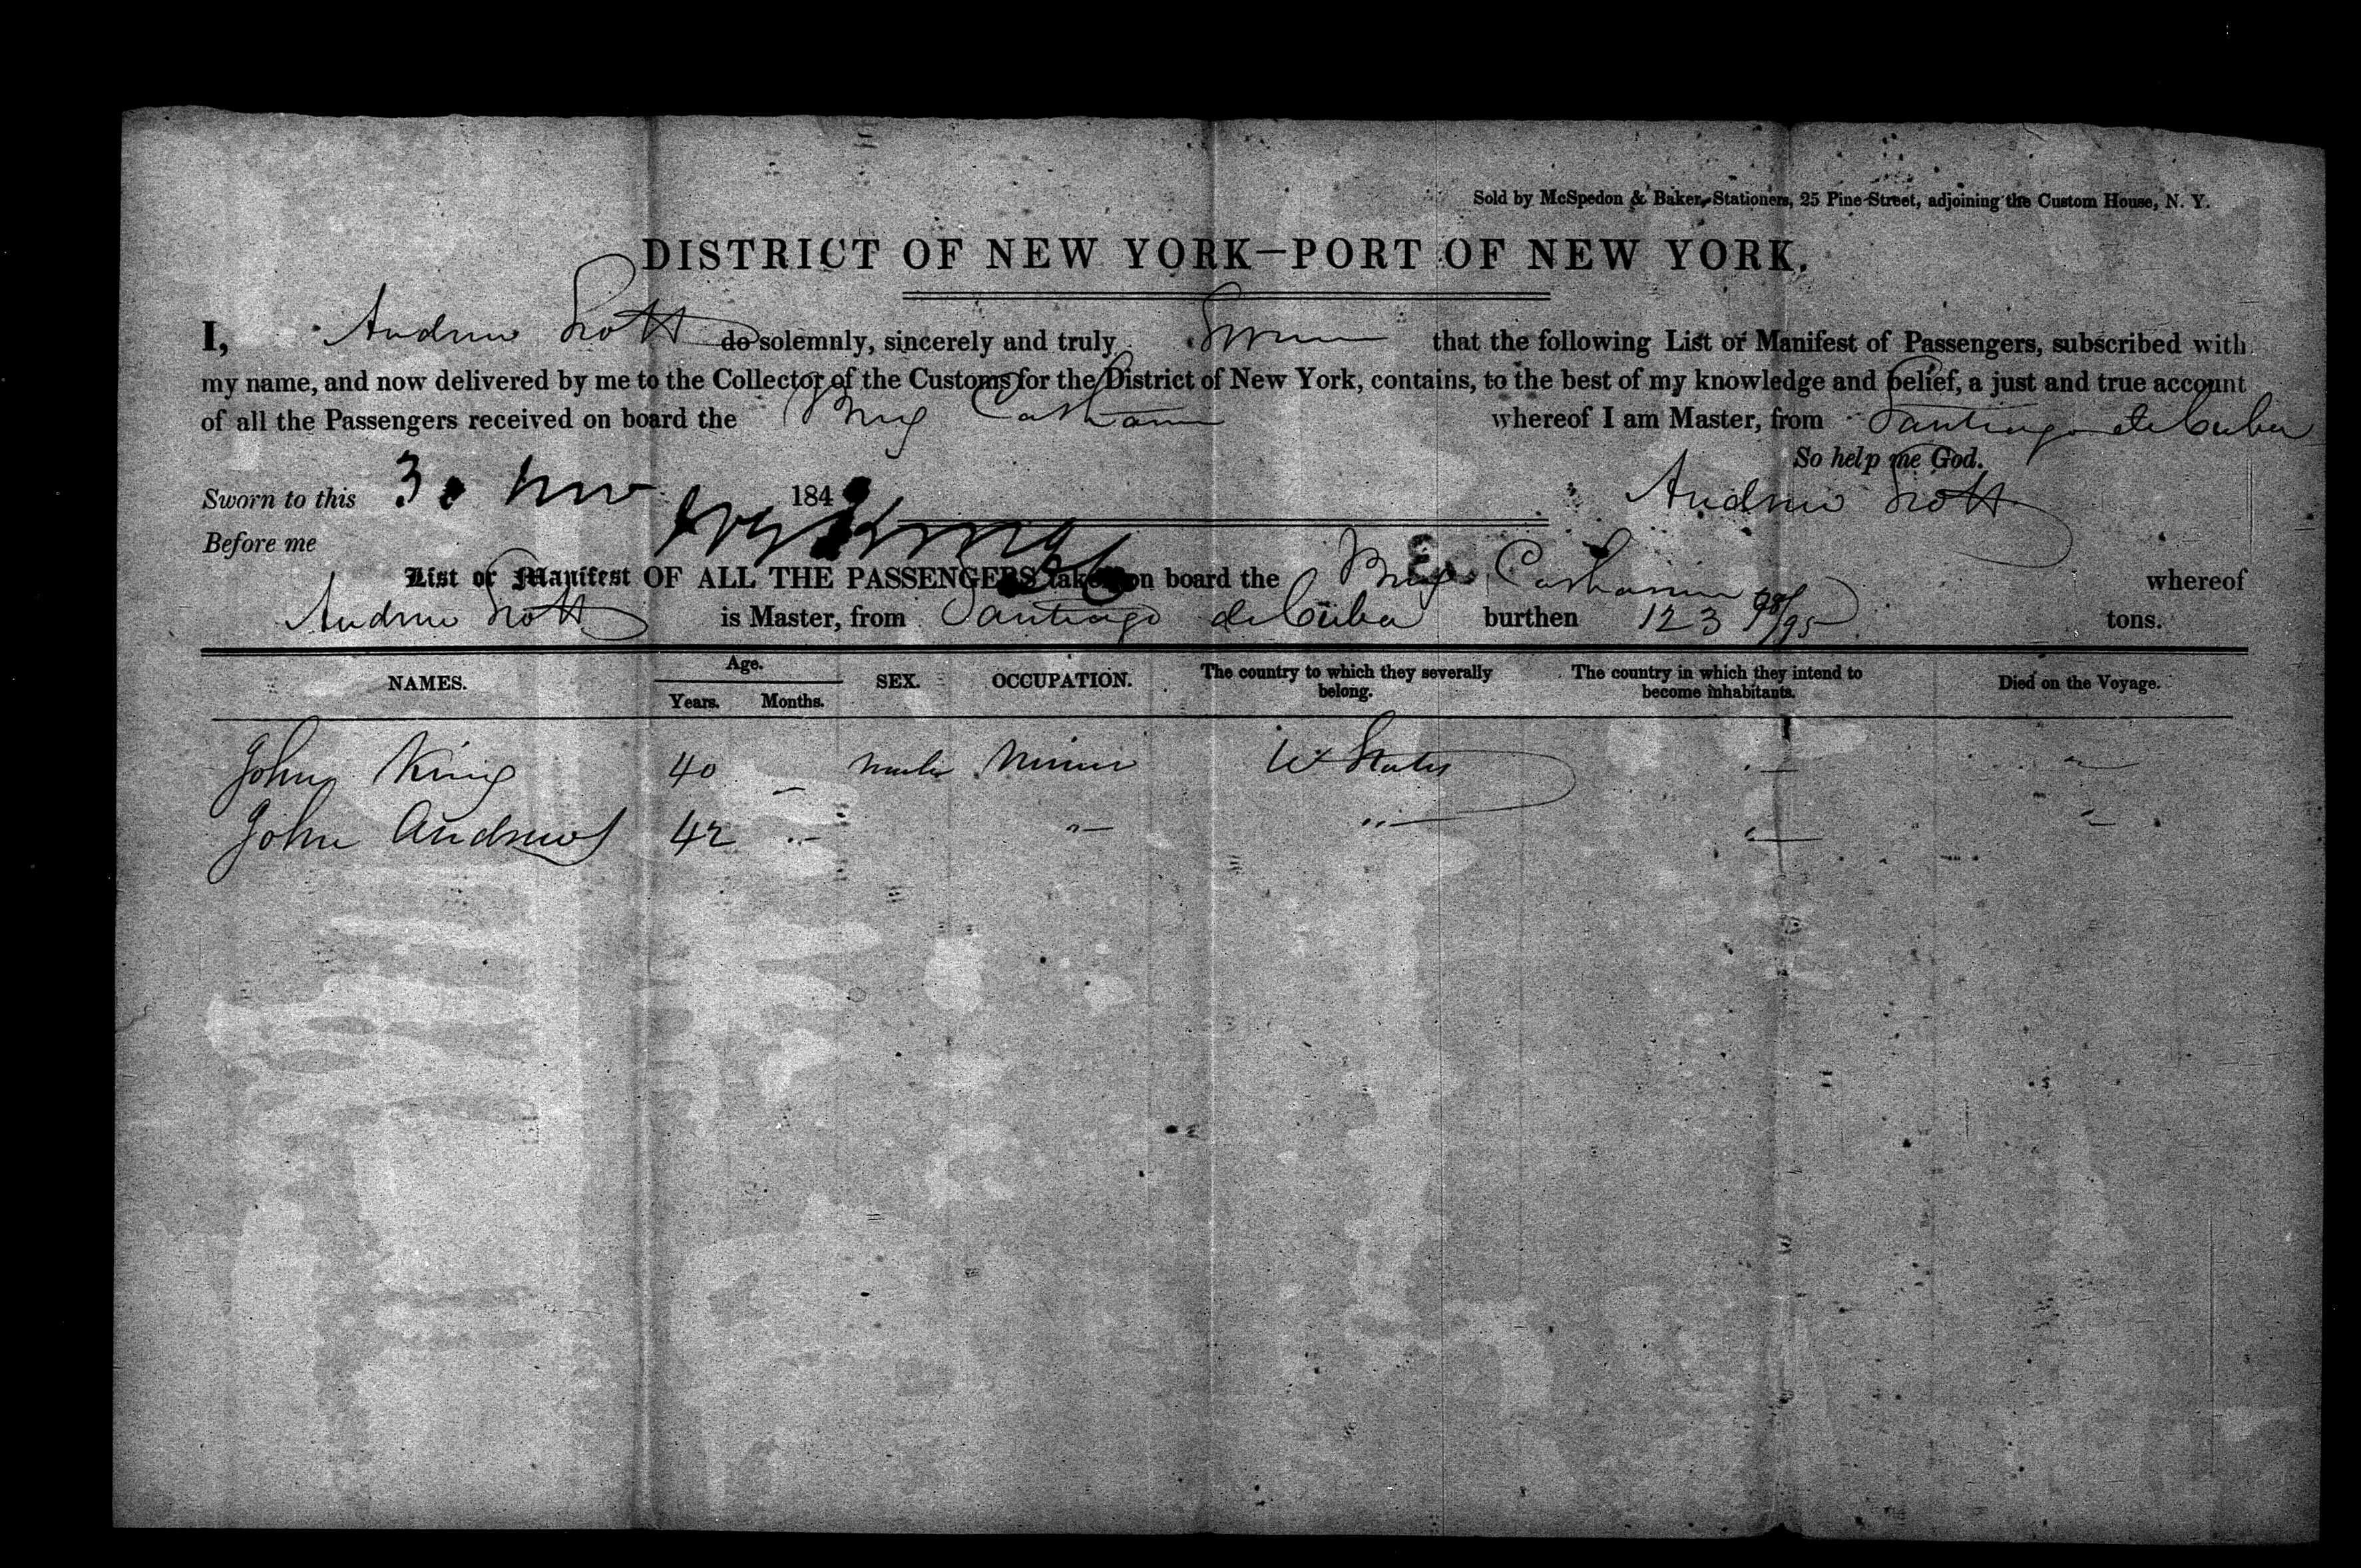 Sold by McSpedon & Baker, Stationers, 25 Pine-Street, adjoining the Custom House, N. Y.
DISTRICT OF NEW YORK—PORT OF NEW YORK.
I, Andrew Scott do solemnly, sincerely and truly Swear that the following List or Manifest of Passengers, subscribed with
my name, and now delivered by me to the Collector of the Customs for the District of New York, contains, to the best of my knowledge and belief, a just and true account
of all the Passengers received on board the Brig whereof I am Master, from Santiago de Cuba
So help me God.
Sworn to this 3 Nov 184 Andrew Scott
Before me
List or Manifest OF ALL THE PASSENGERS taken on board the Brig whereof
Andrew Scott is Master, from Santiago de Cuba burthen 123 98/95 tons.
NAMES. Age. SEX. OCCUPATION. The country to which they severally belong. The country in which they intend to become inhabitants. Died on the Voyage.
Years. Months.
John King 40 — male Miner U States
John Andrews 42 " — " — " —